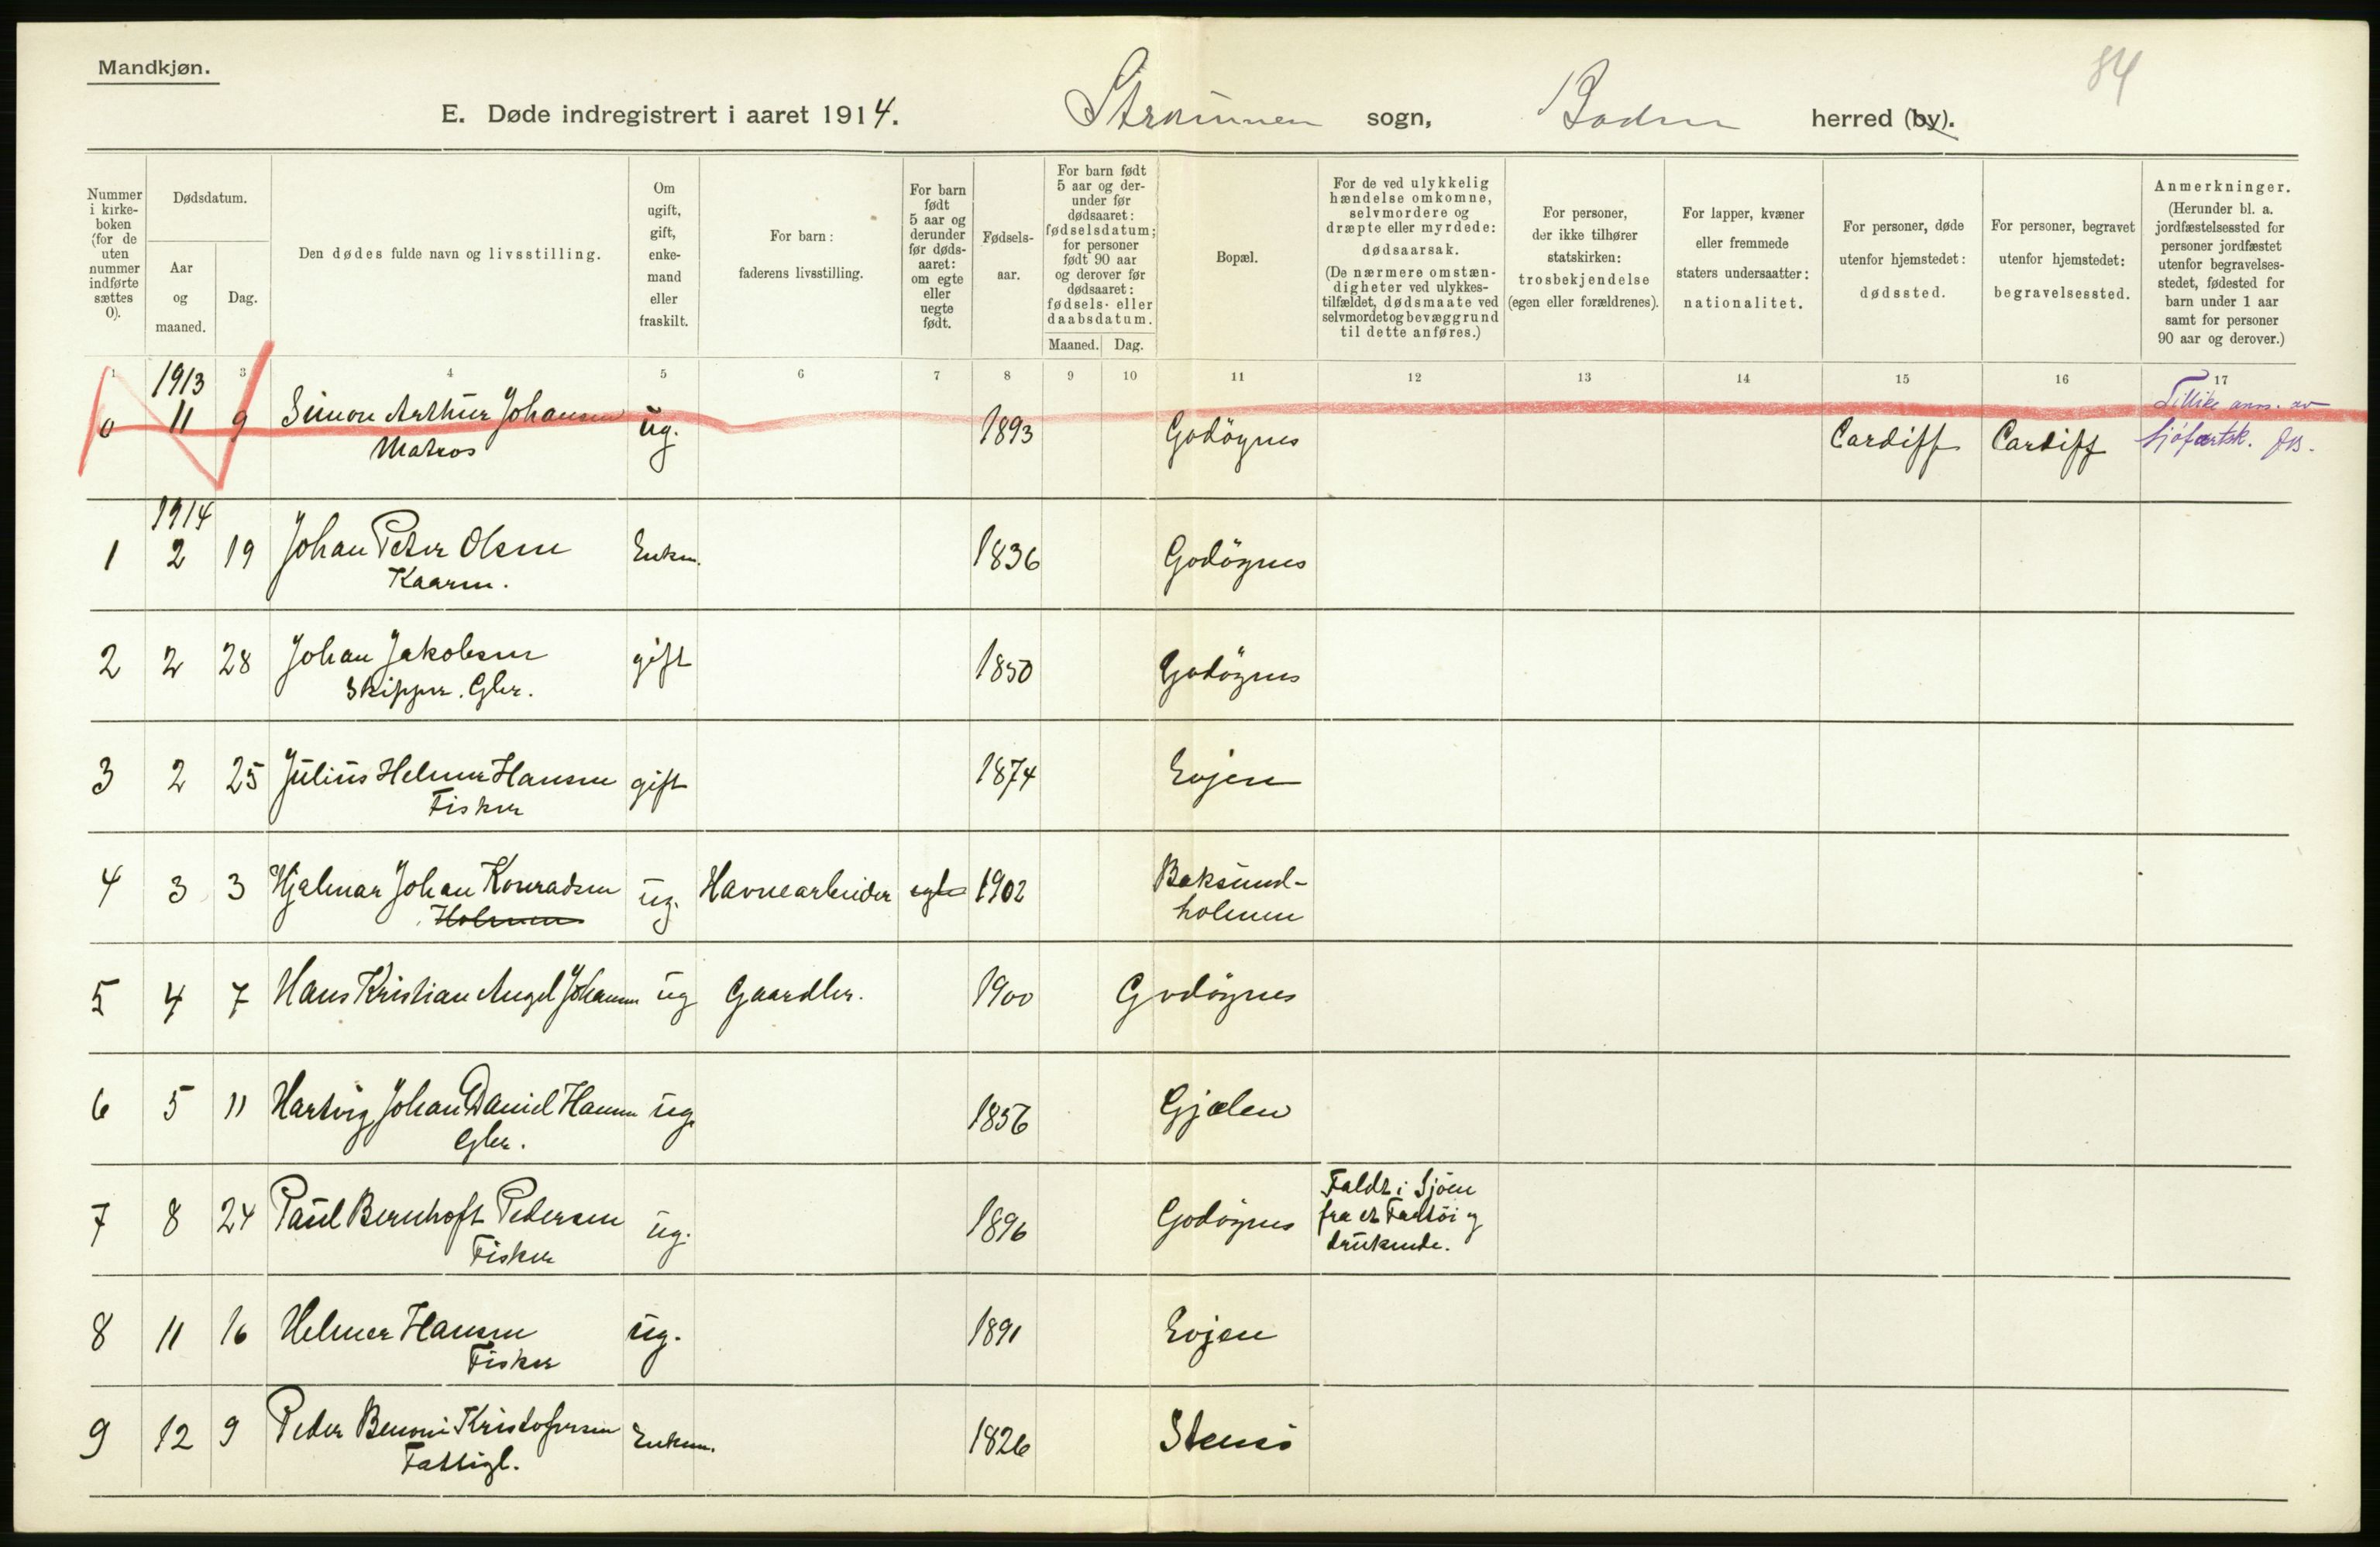 Mandkjøn.
84
E. Døde indregistrert i aaret 1914. Strømmen sogn, Bodin herred (by).
Nummer i kirke- boken (for de uten nummer indførte sættes 0).
Dødsdatum.
Aar og maaned.
Dag.
Den dødes fulde navn og livsstilling.
Om ugift, gift, enke- mand eller fraskilt.
For barn: faderens livsstilling.
For barn født 5 aar og derunder før døds- aaret: om egte eller uegte født.
Fødsels- aar.
For barn født 5 aar og der- under før dødsaaret: fødselsdatum; for personer født 90 aar og derover før dødsaaret: fødsels- eller daabsdatum.
Maaned. Dag.
Bopæl.
For de ved ulykkelig hændelse omkomne, selvmordere og dræpte eller myrdede: dødsaarsak. (De nærmere omstæn- digheter ved ulykkes- tilfældet, dødsmaate ved selvmordet og bevæggrund til dette anføres.)
For personer, der ikke tilhører statskirken: trosbekjendelse (egen eller forældrenes).
For lapper, kvæner eller fremmede staters undersaatter: nationalitet.
For personer, døde utenfor hjemstedet: dødssted.
For personer, begravet utenfor hjemstedet: begravelsessted.
Anmerkninger. (Herunder bl. a. jordfæstelsessted for personer jordfæstet utenfor begravelses- stedet, fødested for barn under 1 aar samt for personer 90 aar og derover.)
1 3 4 5 6 7 8 9 10 11 12 13 14 15 16 17
1913
0 11 9 Simon Arthur Johansen ug. 1893 Godøynes Cardiff Cardiff Tillike anm. av
Matros sjøfartsk.
1914
1 2 19 Johan Peter Olsen Enkm. 1836 Godøynes
Kaarm.
2 2 28 Johan Jakobsen gift 1850 Godøynes
Skipper. Gbr.
3 2 25 Julius Helmer Hansen gift 1874 Evjen
Fisker
4 3 3 Hjalmar Johan Konradsen ug. Havnearbeider egte 1902 Baksund-
Holmen holmen
5 4 7 Hans Kristian Angel Johansen ug Gaardbr. 1900 Godøynes
6 5 11 Hartvig Johan Daniel Hansen ug. 1856 Gjælen
Gbr.
7 8 24 Paul Bernhoft Pedersen ug. 1896 Godøynes Faldt i Sjøen
Fisker fra et Fartøi og
druknede.
8 11 16 Helmer Hansen ug. 1891 Evjen
Fisker
9 12 9 Peder Benoni Kristofersen Enkm. 1826 Stensø
Fattigl.